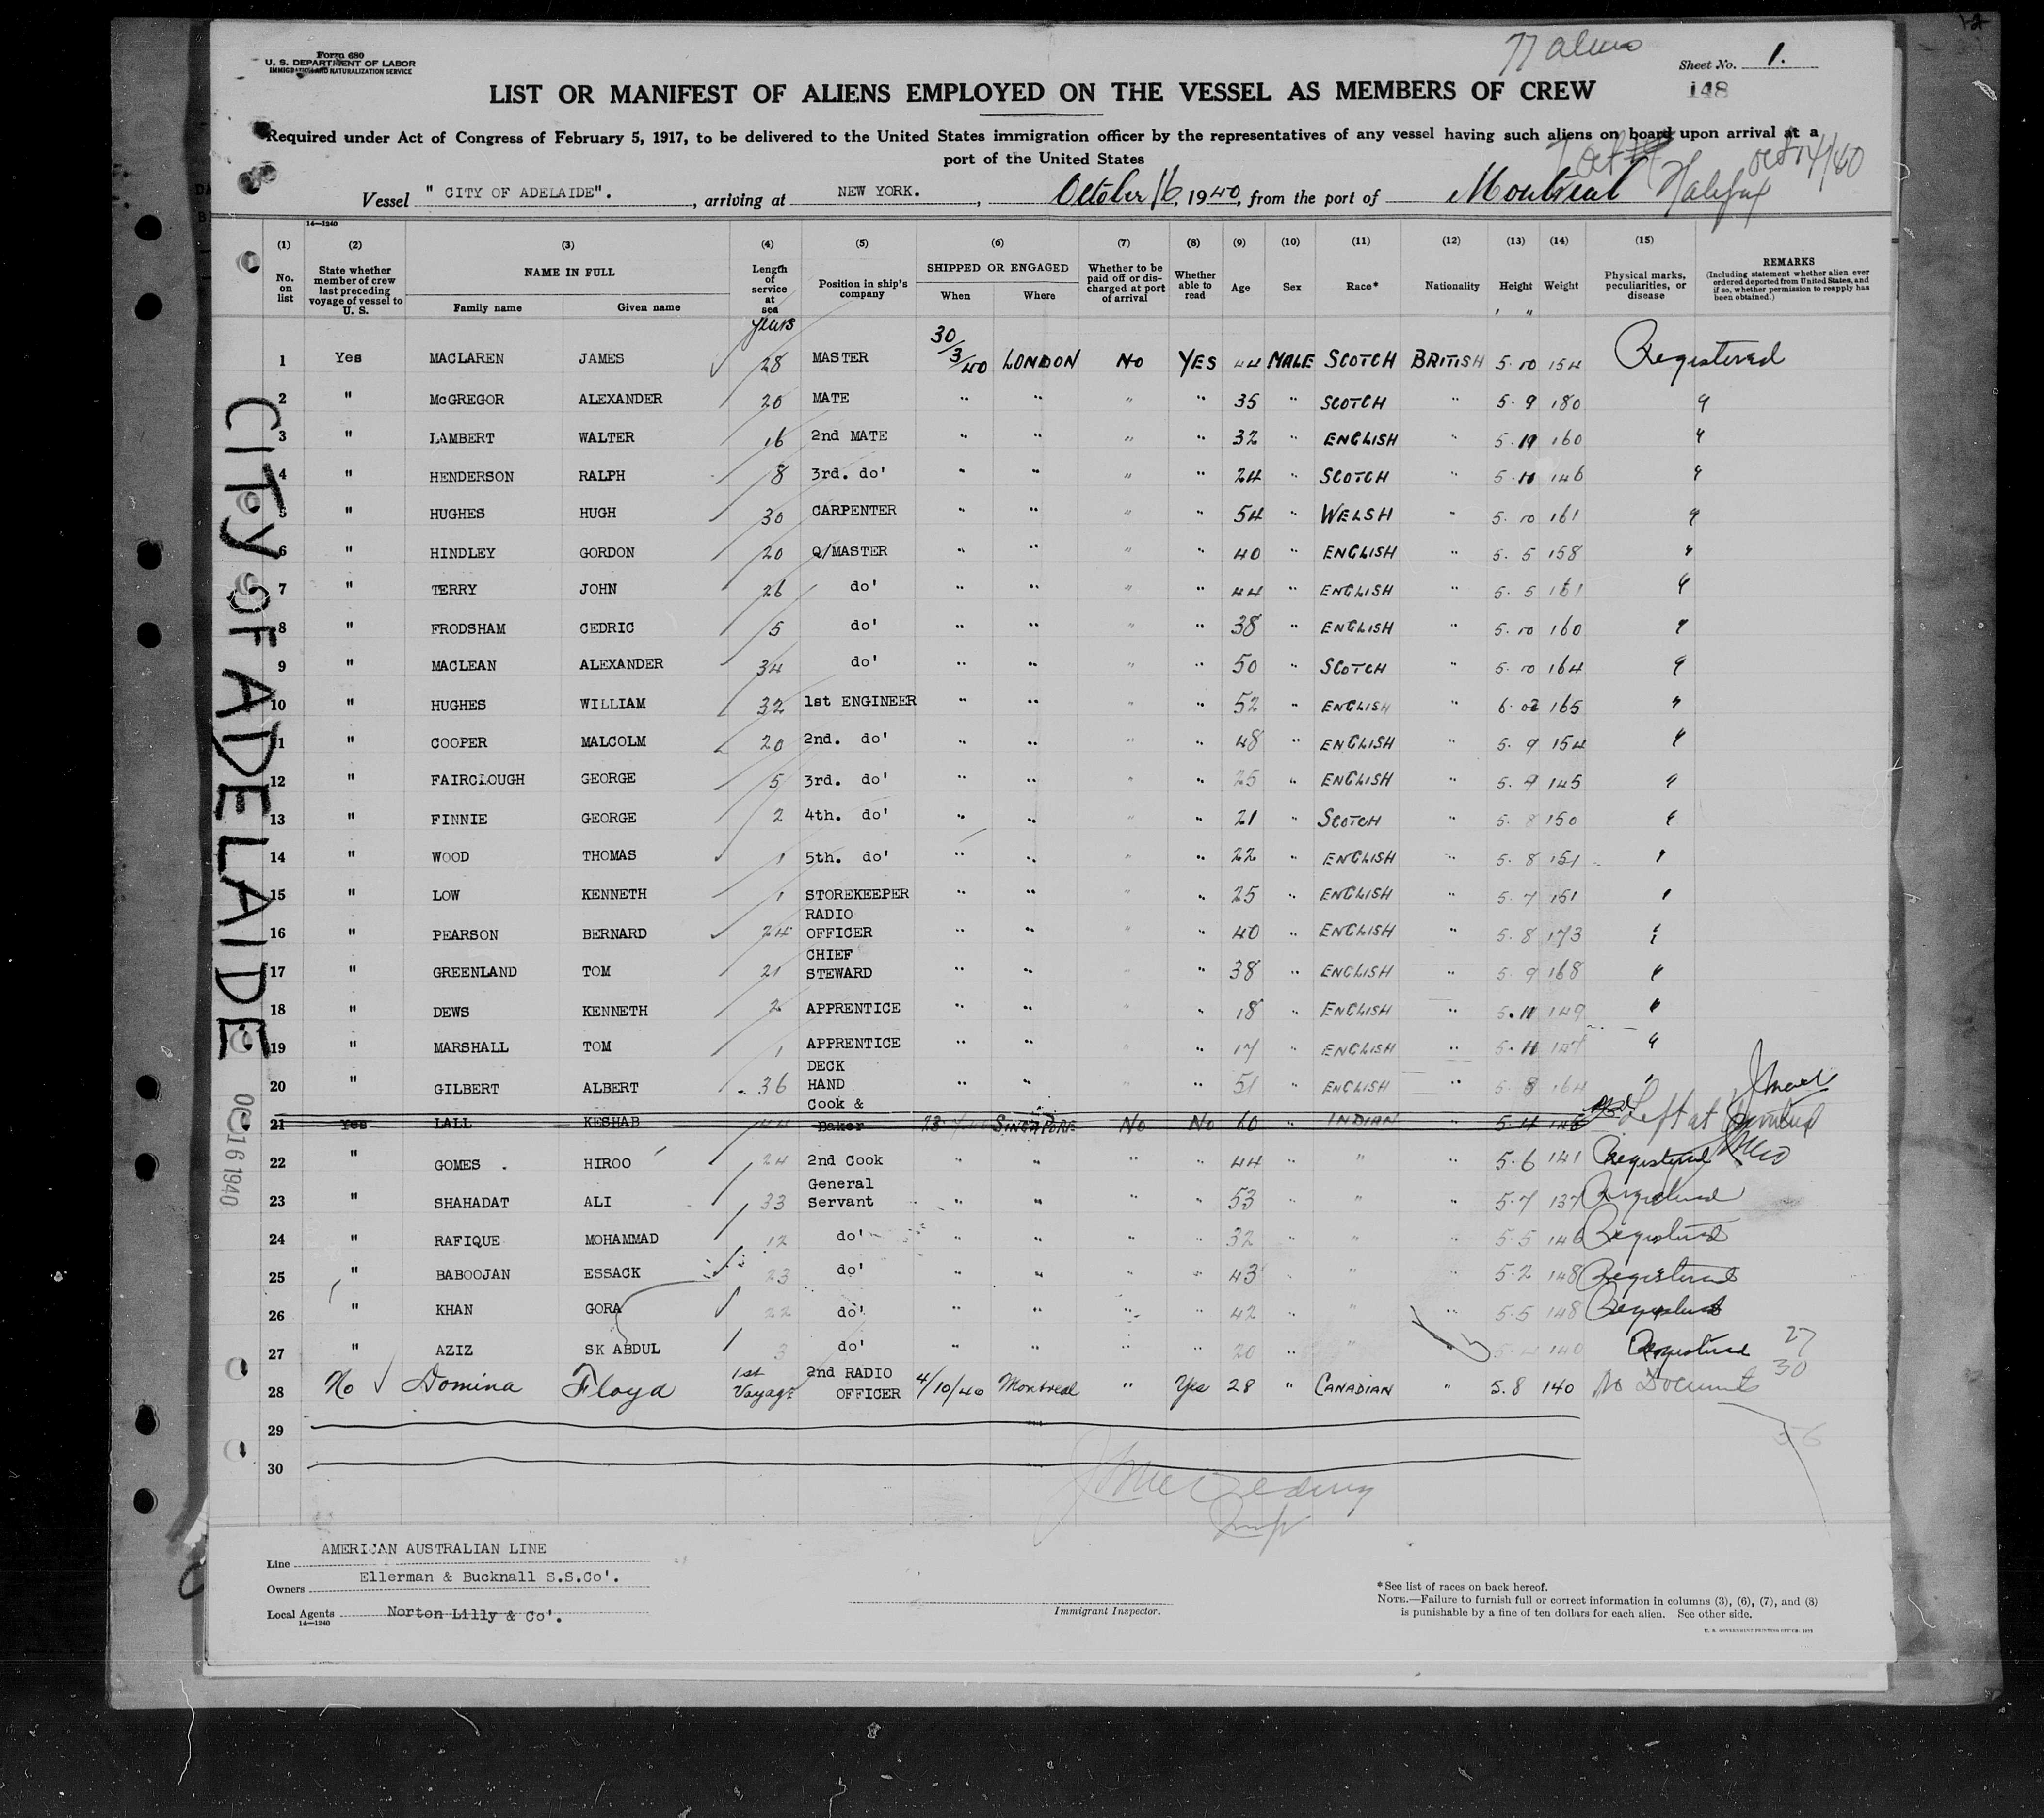 Form 680
U. S. DEPARTMENT OF LABOR
IMMIGRATION AND NATURALIZATION SERVICE
Sheet No. 1.
148
LIST OR MANIFEST OF ALIENS EMPLOYED ON THE VESSEL AS MEMBERS OF CREW
Required under Act of Congress of February 5, 1917, to be delivered to the United States immigration officer by the representatives of any vessel having such aliens on board upon arrival at a
port of the United States
Oct 14/40
Vessel " CITY OF ADELAIDE". , arriving at NEW YORK. , October 16, 1940, from the port of Montreal Halifax
14—1240
(1) (2) (3) (4) (5) (6) (7) (8) (9) (10) (11) (12) (13) (14) (15)
No. on list State whether member of crew last preceding voyage of vessel to U. S. NAME IN FULL Family name Given name Length of service at sea Position in ship's company SHIPPED OR ENGAGED When Where Whether to be paid off or discharged at port of arrival Whether able to read Age Sex Race* Nationality Height Weight Physical marks, peculiarities, or disease REMARKS (Including statement whether alien ever ordered deported from United States, and if so, whether permission to reapply has been obtained.)
years ' "
1 Yes MACLAREN JAMES 28 MASTER 30/3/40 LONDON NO YES 44 MALE SCOTCH BRITISH 5 10 154 Registered
2 " McGREGOR ALEXANDER 20 MATE " " " " 35 " SCOTCH " 5. 9 180 "
3 " LAMBERT WALTER 16 2nd MATE " " " " 32 " ENGLISH " 160 "
4 " HENDERSON RALPH 8 3rd. do' " " " " 24 " SCOTCH " 5. 11 146 "
5 " HUGHES HUGH 30 CARPENTER " " " " 54 " WELSH " 5. 10 161 "
6 " HINDLEY GORDON 20 Q/MASTER " " " " 40 " ENGLISH " 5. 5 158 "
7 " TERRY JOHN 26 do' " " " " 44 " ENGLISH " 5. 5 161 "
8 " FRODSHAM CEDRIC 5 do' " " " " 38 " ENGLISH " 5. 10 160 "
9 " MACLEAN ALEXANDER 34 do' " " " " 50 " SCOTCH " 5. 10 164 "
10 " HUGHES WILLIAM 32 1st ENGINEER " " " " 52 " ENGLISH " 6. 165 "
11 " COOPER MALCOLM 20 2nd. do' " " " " 48 " ENGLISH " 5. 9 154 "
12 " FAIRCLOUGH GEORGE 5 3rd. do' " " " " 25 " ENGLISH " 5. 9 145 "
13 " FINNIE GEORGE 2 4th. do' " " " " 21 " SCOTCH " 5. 8 150 "
14 " WOOD THOMAS 1 5th. do' " " " " 22 " ENGLISH " 5. 8 151 "
15 " LOW KENNETH 1 STOREKEEPER " " " " 25 " ENGLISH " 5. 7 151 "
16 " PEARSON BERNARD 24 RADIO OFFICER " " " " 40 " ENGLISH " 5. 8 173 "
17 " GREENLAND TOM 21 CHIEF STEWARD " " " " 38 " ENGLISH " 5. 9 168 "
18 " DEWS KENNETH 2 APPRENTICE " " " " 18 " ENGLISH " 5. 11 149 "
19 " MARSHALL TOM 1 APPRENTICE " " " " 17 " ENGLISH " 5. 11 "
20 " GILBERT ALBERT 36 DECK HAND " " " " 51 " ENGLISH " 5. 8 164 "
21 Yes LALL KESHAB 44 Cook & Baker SINGAPORE No No 60 " INDIAN " 5. 4 Left at
22 " GOMES . HIROO 24 2nd Cook " " " " 44 " " " 5. 6 141 Registered
23 " SHAHADAT ALI 33 General Servant " " " " 53 " " " 5. 7 137 Registered
24 " RAFIQUE MOHAMMAD 12 do' " " " " 32 " " " 5. 5 146 Registered
25 " BABOOJAN ESSACK 23 do' " " " " 43 " " " 5. 2 148 Registered
26 " KHAN GORA 22 do' " " " " 42 " " " 5. 5 148 Registered
27 " AZIZ SK ABDUL 3 do' " " " " 20 " " " 140 Registered 27
28 No Domina Floyd 1st Voyage 2nd RADIO OFFICER 4/10/40 Montreal " Yes 28 " CANADIAN " 5. 8 140 No Documents 30
29
30
56
CITY OF ADELAIDE
OCT 16 1940
Line AMERICAN AUSTRALIAN LINE
Owners Ellerman & Bucknall S.S.Co'.
Local Agents Norton Lilly & Co'.
14—1240
Immigrant Inspector.
*See list of races on back hereof.
NOTE.—Failure to furnish full or correct information in columns (3), (6), (7), and (8)
is punishable by a fine of ten dollars for each alien. See other side.